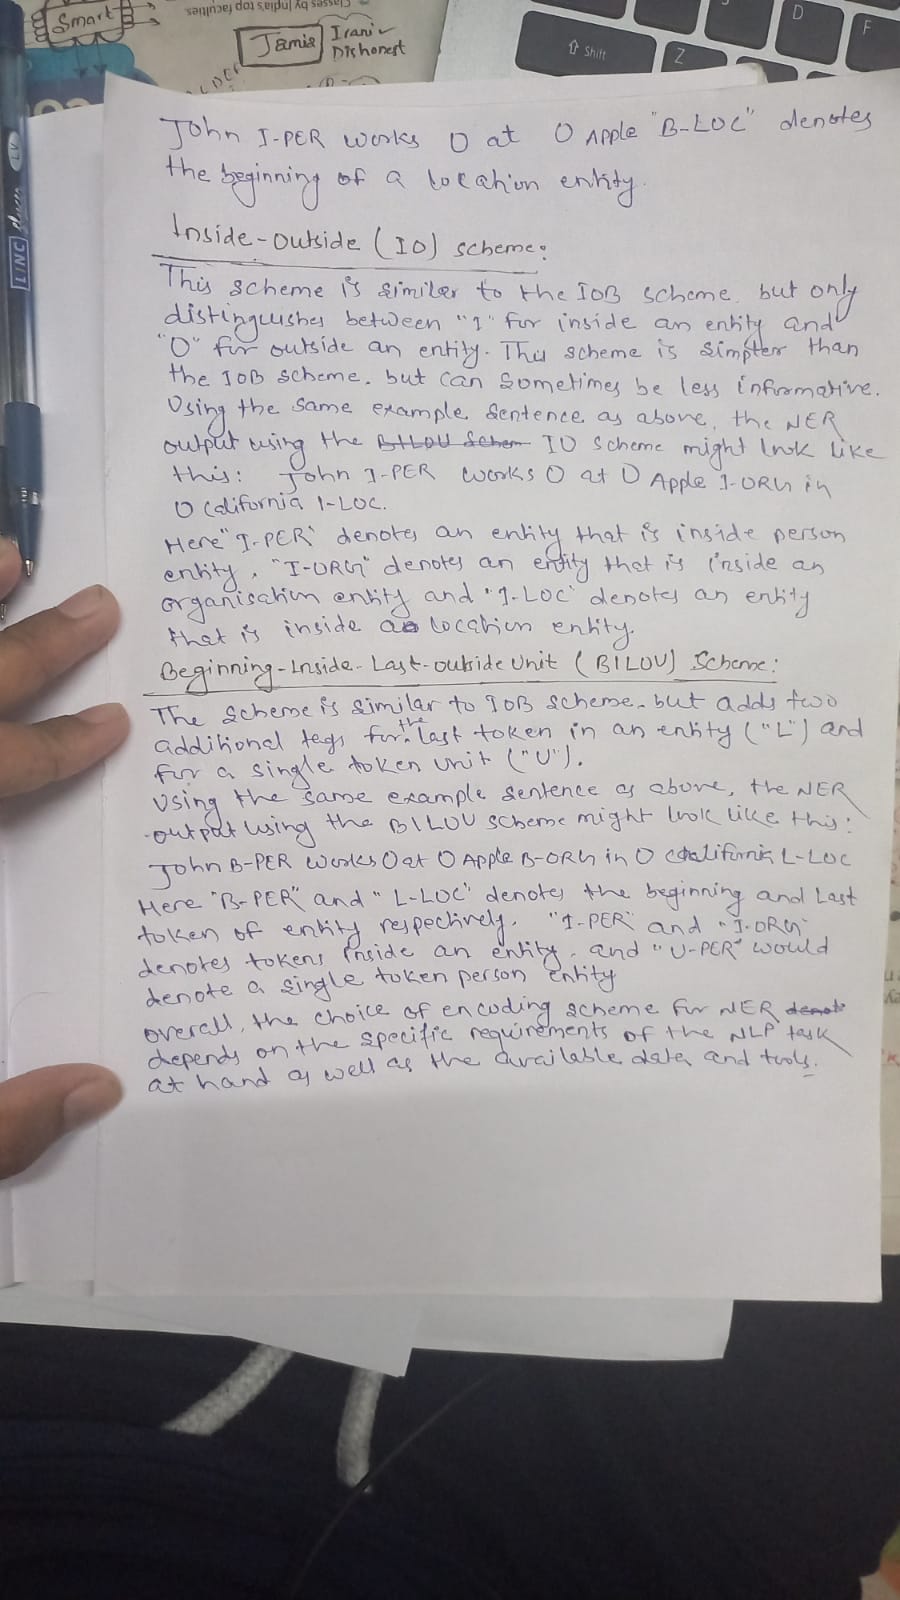 Smart
Classes by Inplas, top faculties
Jamia
Irani
Dishonest
D
F
Shift
Z
LINC
John I-PER works O at O Apple "B-LOC" denotes
the beginning of a location entity.
Inside-outside (IO) scheme:
This scheme is similar to the IOB scheme, but only
distinguishes between "I" for inside an entity and
"O" for outside an entity. This scheme is simpler than
the IOB scheme, but can sometimes be less informative.
Using the same example sentence as above, the NER
output using the BILOU Schem IO scheme might look like
this: John I-PER works O at O Apple I-ORG in
O California I-LOC.
Here "I-PER" denotes an entity that is inside person
entity, "I-ORG" denotes an entity that is inside an
organisation entity and "I-LOC" denotes an entity
that is inside a location entity.
Beginning-Inside-Last-outside Unit (BILOU) Scheme:
The scheme is similar to IOB scheme, but adds two
additional tags for the last token in an entity ("L") and
for a single token unit ("U").
Using the same example sentence as above, the NER
output using the BILOU scheme might look like this:
John B-PER works O at O Apple B-ORG in O California L-LOC
Here "B-PER" and "L-LOC" denotes the beginning and Last
token of entity respectively. "I-PER" and "I-ORG"
denotes tokens inside an entity, and "U-PER" would
denote a single token person entity
overall, the choice of encoding scheme for NER denot
depends on the specific requirements of the NLP task
at hand as well as the available data and tools.